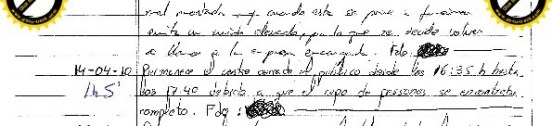 mal montada, y cuando esta se pone a funcionar
emite un ruido elevado, por lo que se decide volver
a llamar a la empresa encargada. Fdo:
14-04-10 Permanece el centro cerrado al público desde las 16:35 h hasta
1h 5' las 17:40 debido a que el cupo de personas se encontraba
completo. Fdo: